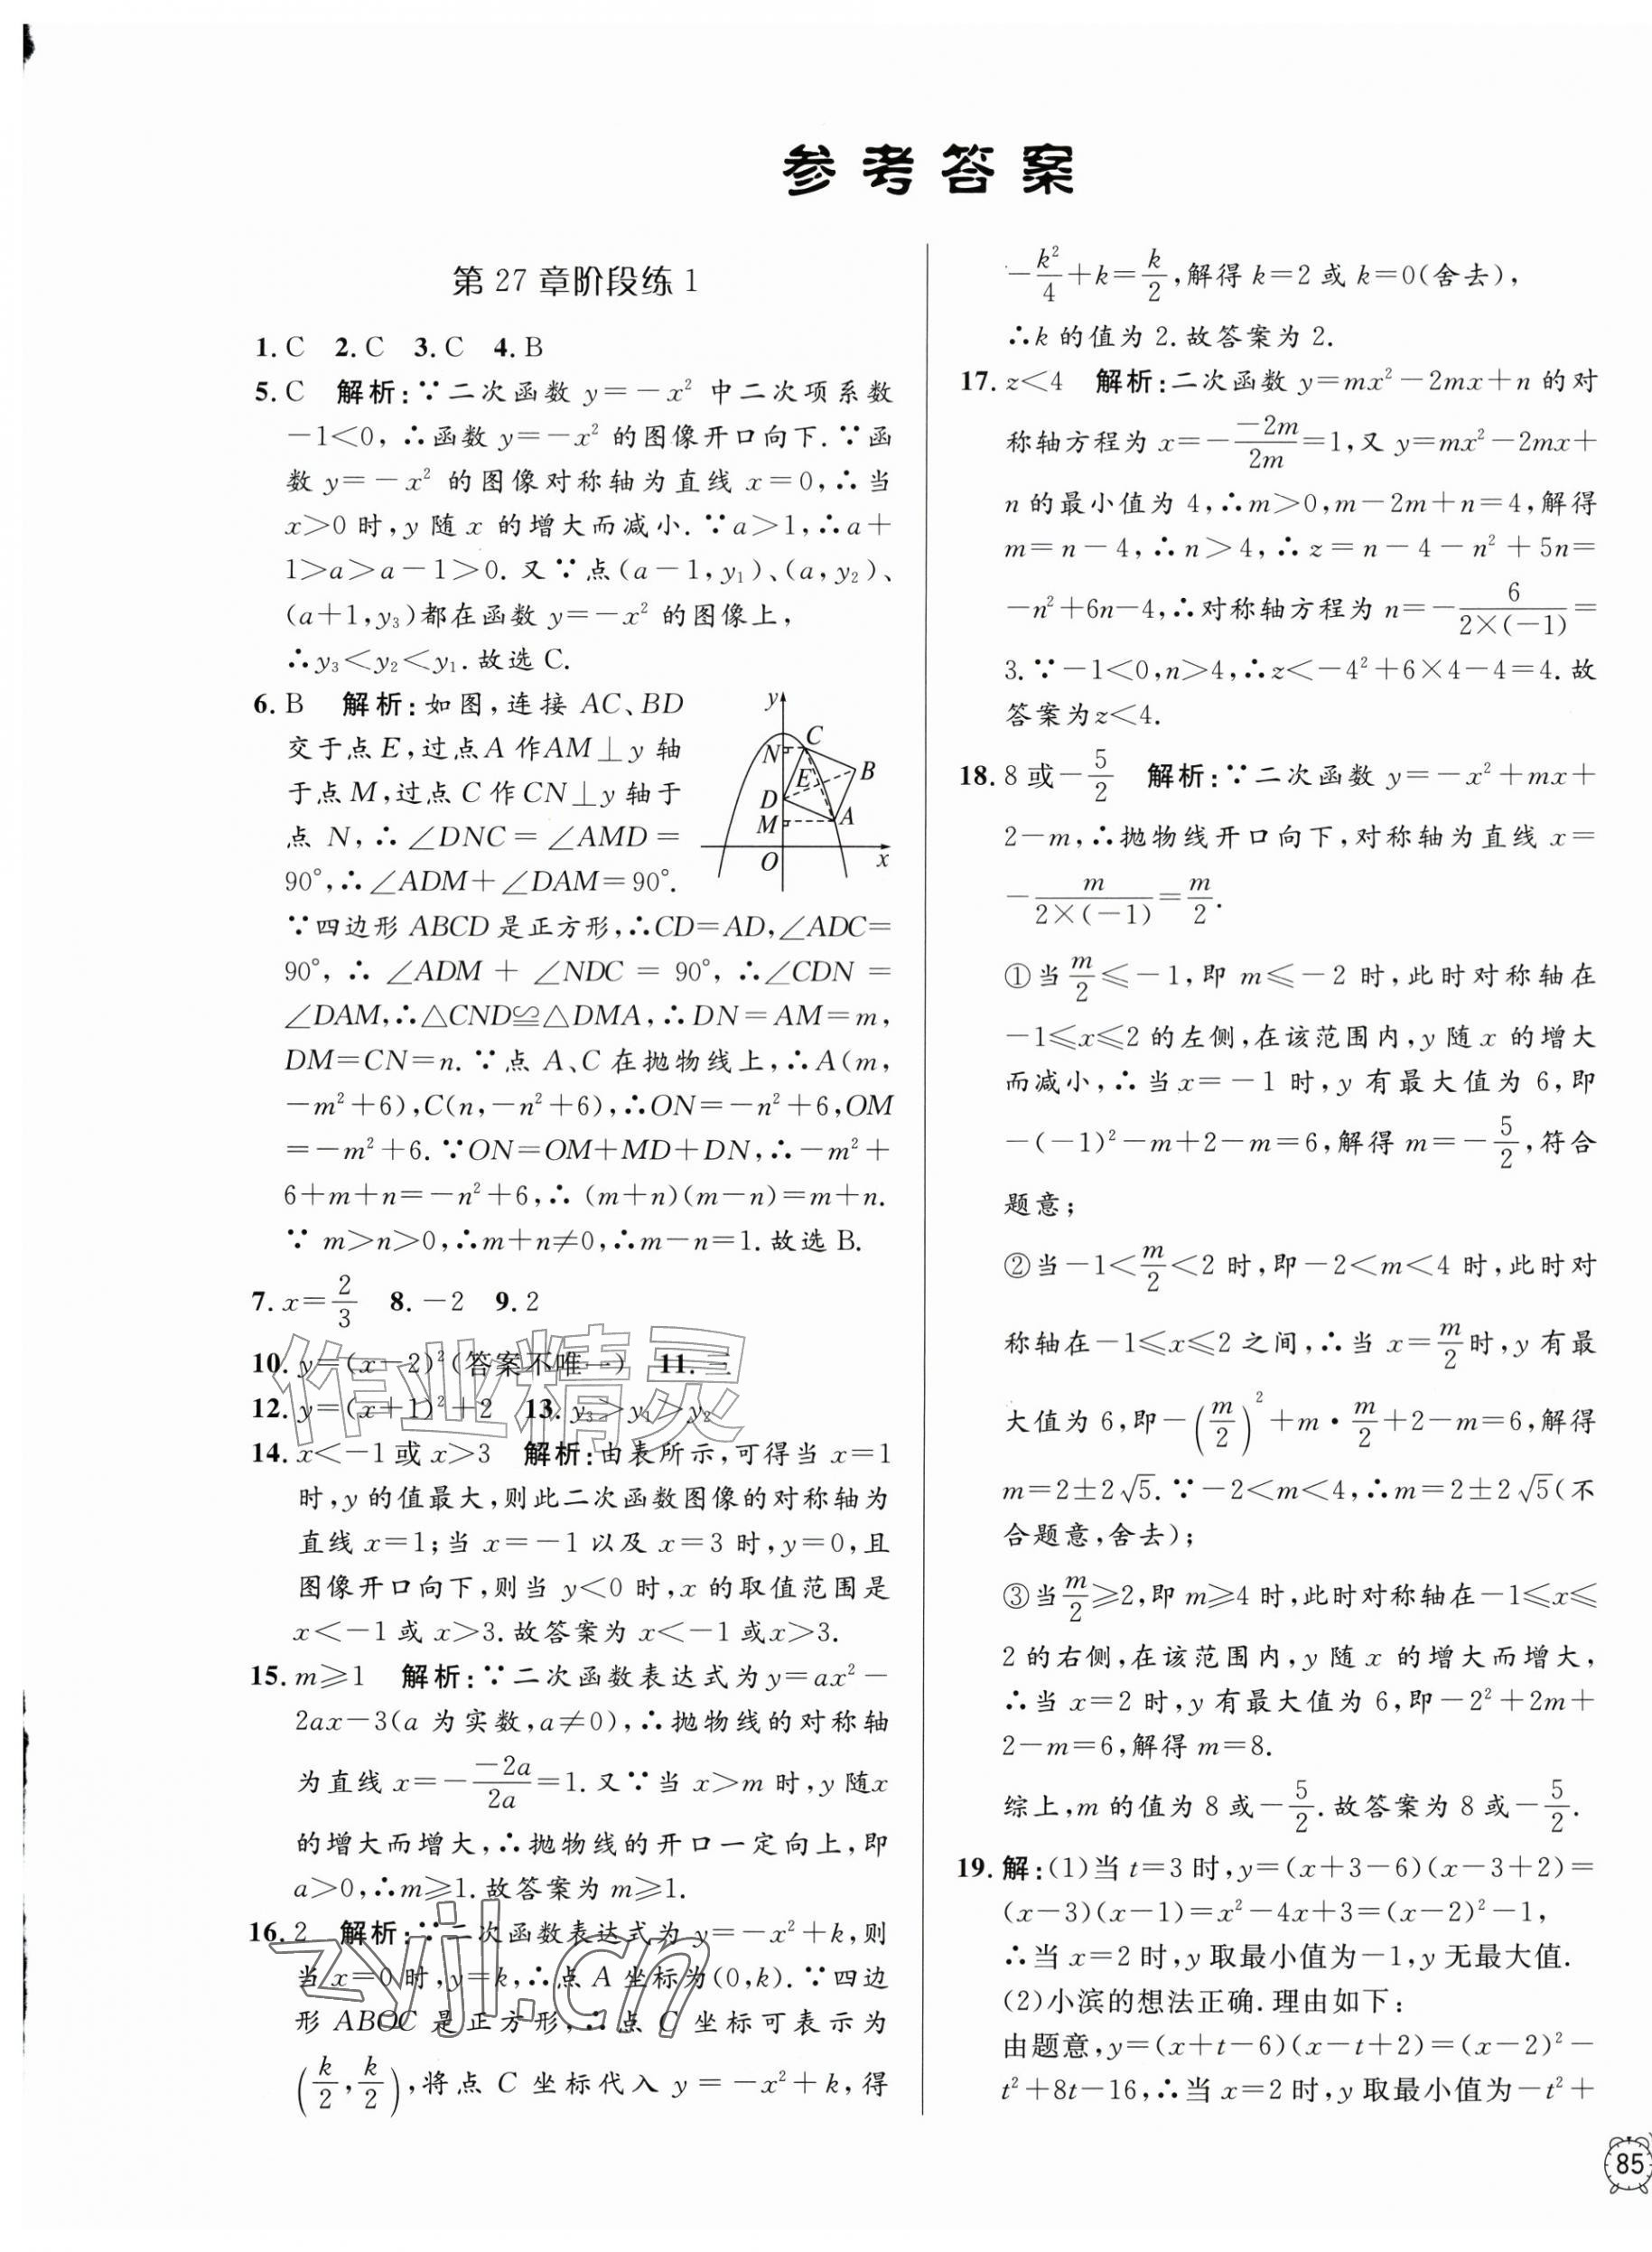 参考答案
第 27 章阶段练 1
1. C 2. C 3. C 4. B
5. C 解析:∵二次函数 y=-x² 中二次项系数
-1<0,∴函数 y=-x² 的图像开口向下.∵函
数 y=-x² 的图像对称轴为直线 x=0,∴当
x>0 时,y 随 x 的增大而减小.∵a>1,∴a+
1>a>a-1>0. 又∵点(a-1,y₁)、(a,y₂)、
(a+1,y₃)都在函数 y=-x² 的图像上,
∴y₃<y₂<y₁.故选 C.
6. B 解析:如图,连接 AC、BD
交于点 E,过点 A 作 AM⊥y 轴
于点 M,过点 C 作 CN⊥y 轴于
点 N,∴∠DNC=∠AMD=
90°,∴∠ADM+∠DAM=90°.
y
N
C
E
B
D
M
A
O
x
∵四边形 ABCD 是正方形,∴CD=AD,∠ADC=
90°,∴∠ADM+∠NDC=90°,∴∠CDN=
∠DAM,∴△CND≌△DMA,∴DN=AM=m,
DM=CN=n.∵点 A、C 在抛物线上,∴A(m,
-m²+6),C(n,-n²+6),∴ON=-n²+6,OM
=-m²+6.∵ON=OM+MD+DN,∴-m²+
6+m+n=-n²+6,∴(m+n)(m-n)=m+n.
∵ m>n>0,∴m+n≠0,∴m-n=1.故选 B.
7. x=2/3 8. -2 9. 2
10. y=(x-2)²(答案不唯一) 11. 三
12. y=(x+1)²+2 13. y₃>y₁>y₂
14. x<-1 或 x>3 解析:由表所示,可得当 x=1
时,y 的值最大,则此二次函数图像的对称轴为
直线 x=1;当 x=-1 以及 x=3 时,y=0,且
图像开口向下,则当 y<0 时,x 的取值范围是
x<-1 或 x>3.故答案为 x<-1 或x>3.
15. m≥1 解析:∵二次函数表达式为 y=ax²-
2ax-3(a 为实数,a≠0),∴抛物线的对称轴
为直线 x=-(-2a)/(2a)=1. 又∵当 x>m 时,y 随x
的增大而增大,∴抛物线的开口一定向上,即
a>0,∴m≥1.故答案为 m≥1.
16. 2 解析:∵二次函数表达式为 y=-x²+k,则
当 x=0 时,y=k,∴点 A 坐标为(0,k).∵四边
形 ABOC 是正方形,∴点 C 坐标可表示为
(k/2,k/2),将点 C 坐标代入 y=-x²+k,得
-k²/4+k=k/2,解得 k=2 或 k=0(舍去),
∴k 的值为 2.故答案为 2.
17. z<4 解析:二次函数 y=mx²-2mx+n 的对
称轴方程为 x=-(-2m)/(2m)=1,又 y=mx²-2mx+
n 的最小值为 4,∴m>0,m-2m+n=4,解得
m=n-4,∴n>4,∴z=n-4-n²+5n=
-n²+6n-4,∴对称轴方程为 n=-6/(2×(-1))=
3.∵-1<0,n>4,∴z<-4²+6×4-4=4.故
答案为z<4.
18. 8 或-5/2 解析:∵二次函数 y=-x²+mx+
2-m,∴抛物线开口向下,对称轴为直线 x=
-m/(2×(-1))=m/2.
①当 m/2≤-1,即 m≤-2 时,此时对称轴在
-1≤x≤2 的左侧,在该范围内,y 随 x 的增大
而减小,∴当 x=-1 时,y 有最大值为 6,即
-(-1)²-m+2-m=6,解得 m=-5/2,符合
题意;
②当-1<m/2<2 时,即-2<m<4 时,此时对
称轴在-1≤x≤2 之间,∴当 x=m/2时,y 有最
大值为 6,即-(m/2)²+m·m/2+2-m=6,解得
m=2±2√5.∵-2<m<4,∴m=2±2√5(不
合题意,舍去);
③当 m/2≥2,即 m≥4 时,此时对称轴在-1≤x≤
2 的右侧,在该范围内,y 随 x 的增大而增大,
∴当 x=2 时,y 有最大值为 6,即-2²+2m+
2-m=6,解得 m=8.
综上,m 的值为 8 或-5/2.故答案为 8 或-5/2.
19. 解:(1)当 t=3 时,y=(x+3-6)(x-3+2)=
(x-3)(x-1)=x²-4x+3=(x-2)²-1,
∴当 x=2 时,y 取最小值为-1,y 无最大值.
(2)小滨的想法正确.理由如下:
由题意,y=(x+t-6)(x-t+2)=(x-2)²-
t²+8t-16,∴当 x=2 时,y 取最小值为-t²+
85
作业精灵
zyjl.cn